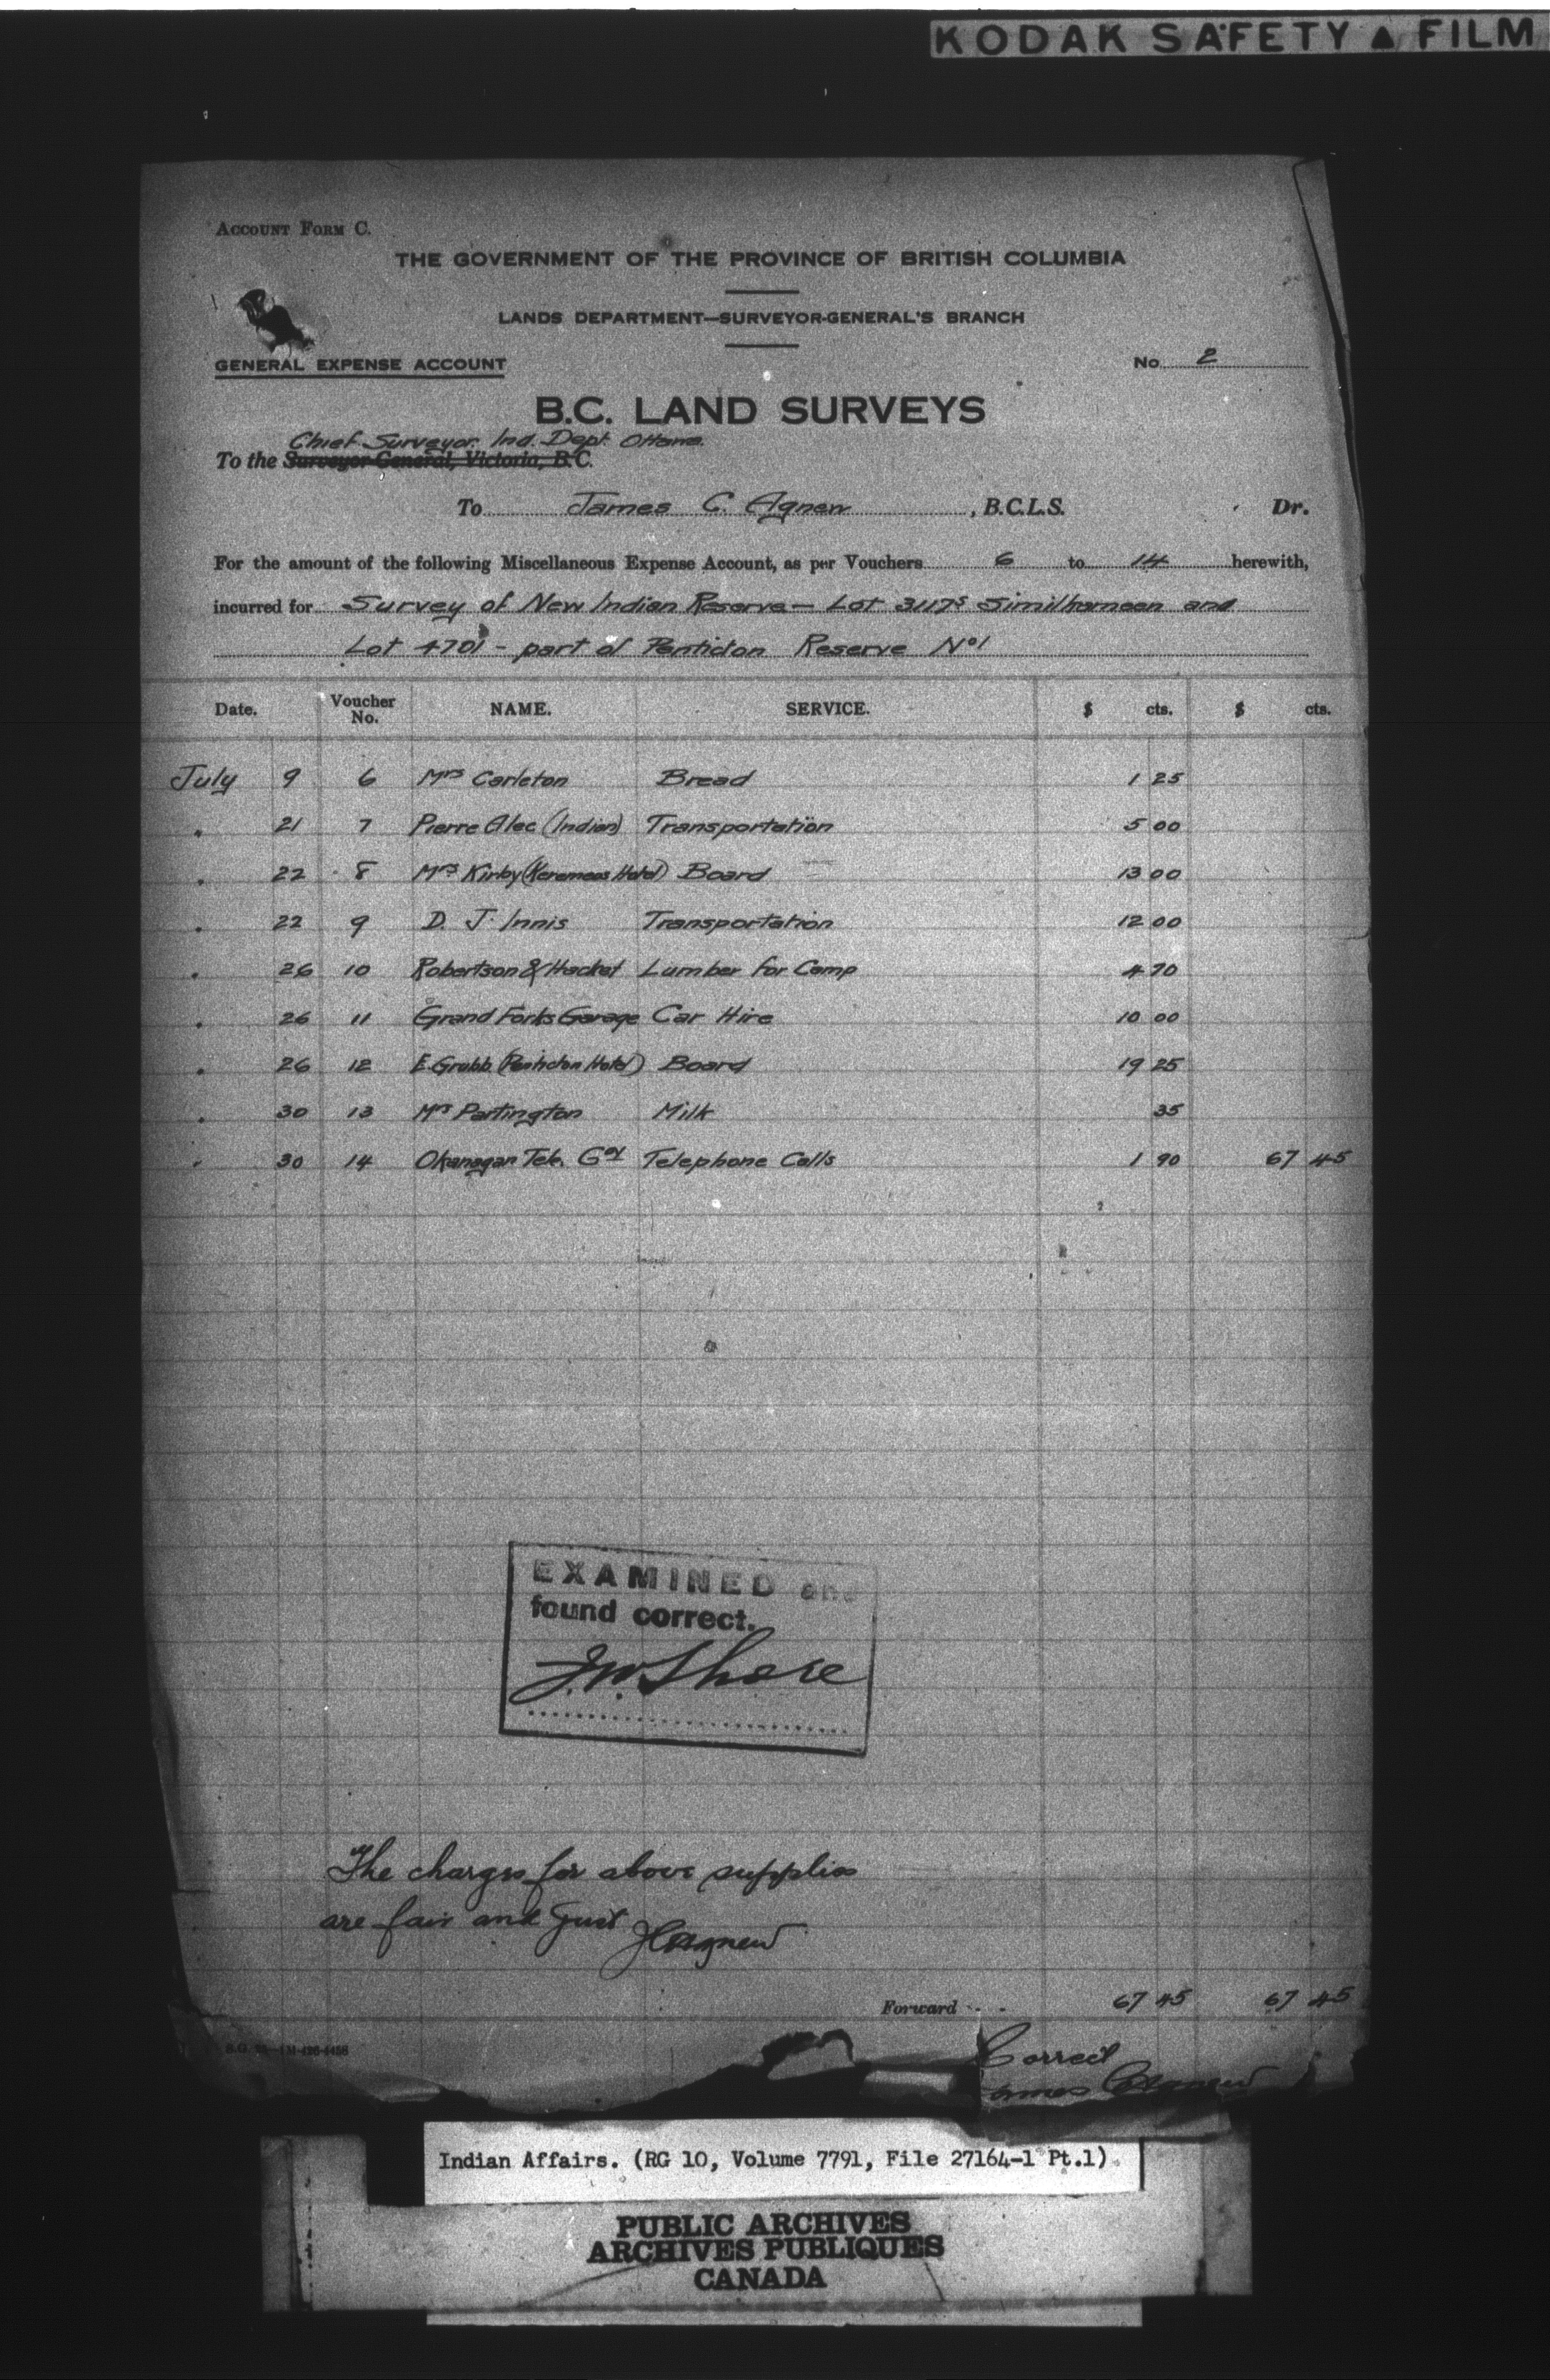 KODAK SAFETY ▲ FILM
ACCOUNT FORM C.
THE GOVERNMENT OF THE PROVINCE OF BRITISH COLUMBIA
LANDS DEPARTMENT—SURVEYOR-GENERAL'S BRANCH
GENERAL EXPENSE ACCOUNT No. 2
B.C. LAND SURVEYS
Chief Surveyor. Ind. Dept. Ottawa.
To the Surveyor-General, Victoria, B.C.
To James C. Agnew, B.C.L.S. Dr.
For the amount of the following Miscellaneous Expense Account, as per Vouchers 6 to 14 herewith,
incurred for Survey of New Indian Reserve — Lot 3117s Similkameen and
Lot 4701 - part of Penticton Reserve No 1
Date. Voucher No. NAME. SERVICE. $ cts. $ cts.
July 9 6 Mrs Carleton Bread 1 25
" 21 7 Pierre Alec (Indian) Transportation 5 00
" 22 8 Mrs Kirby (Keremeos Hotel) Board 13 00
" 22 9 D. J. Innis Transportation 12 00
" 26 10 Robertson & Hacket Lumber for Camp 4 70
" 26 11 Grand Forks Garage Car Hire 10 00
" 26 12 E. Grubb (Penticton Hotel) Board 19 25
" 30 13 Mrs Partington Milk 35
" 30 14 Okanagan Tele. Coy Telephone Calls 1 90 67 45
EXAMINED and
found correct.
J.W. Shore
The charges for above supplies
are fair and just
JCAgnew
Forward - - 67 45 67 45
Correct
James C Agnew
Indian Affairs. (RG 10, Volume 7791, File 27164-1 Pt.1)
PUBLIC ARCHIVES
ARCHIVES PUBLIQUES
CANADA